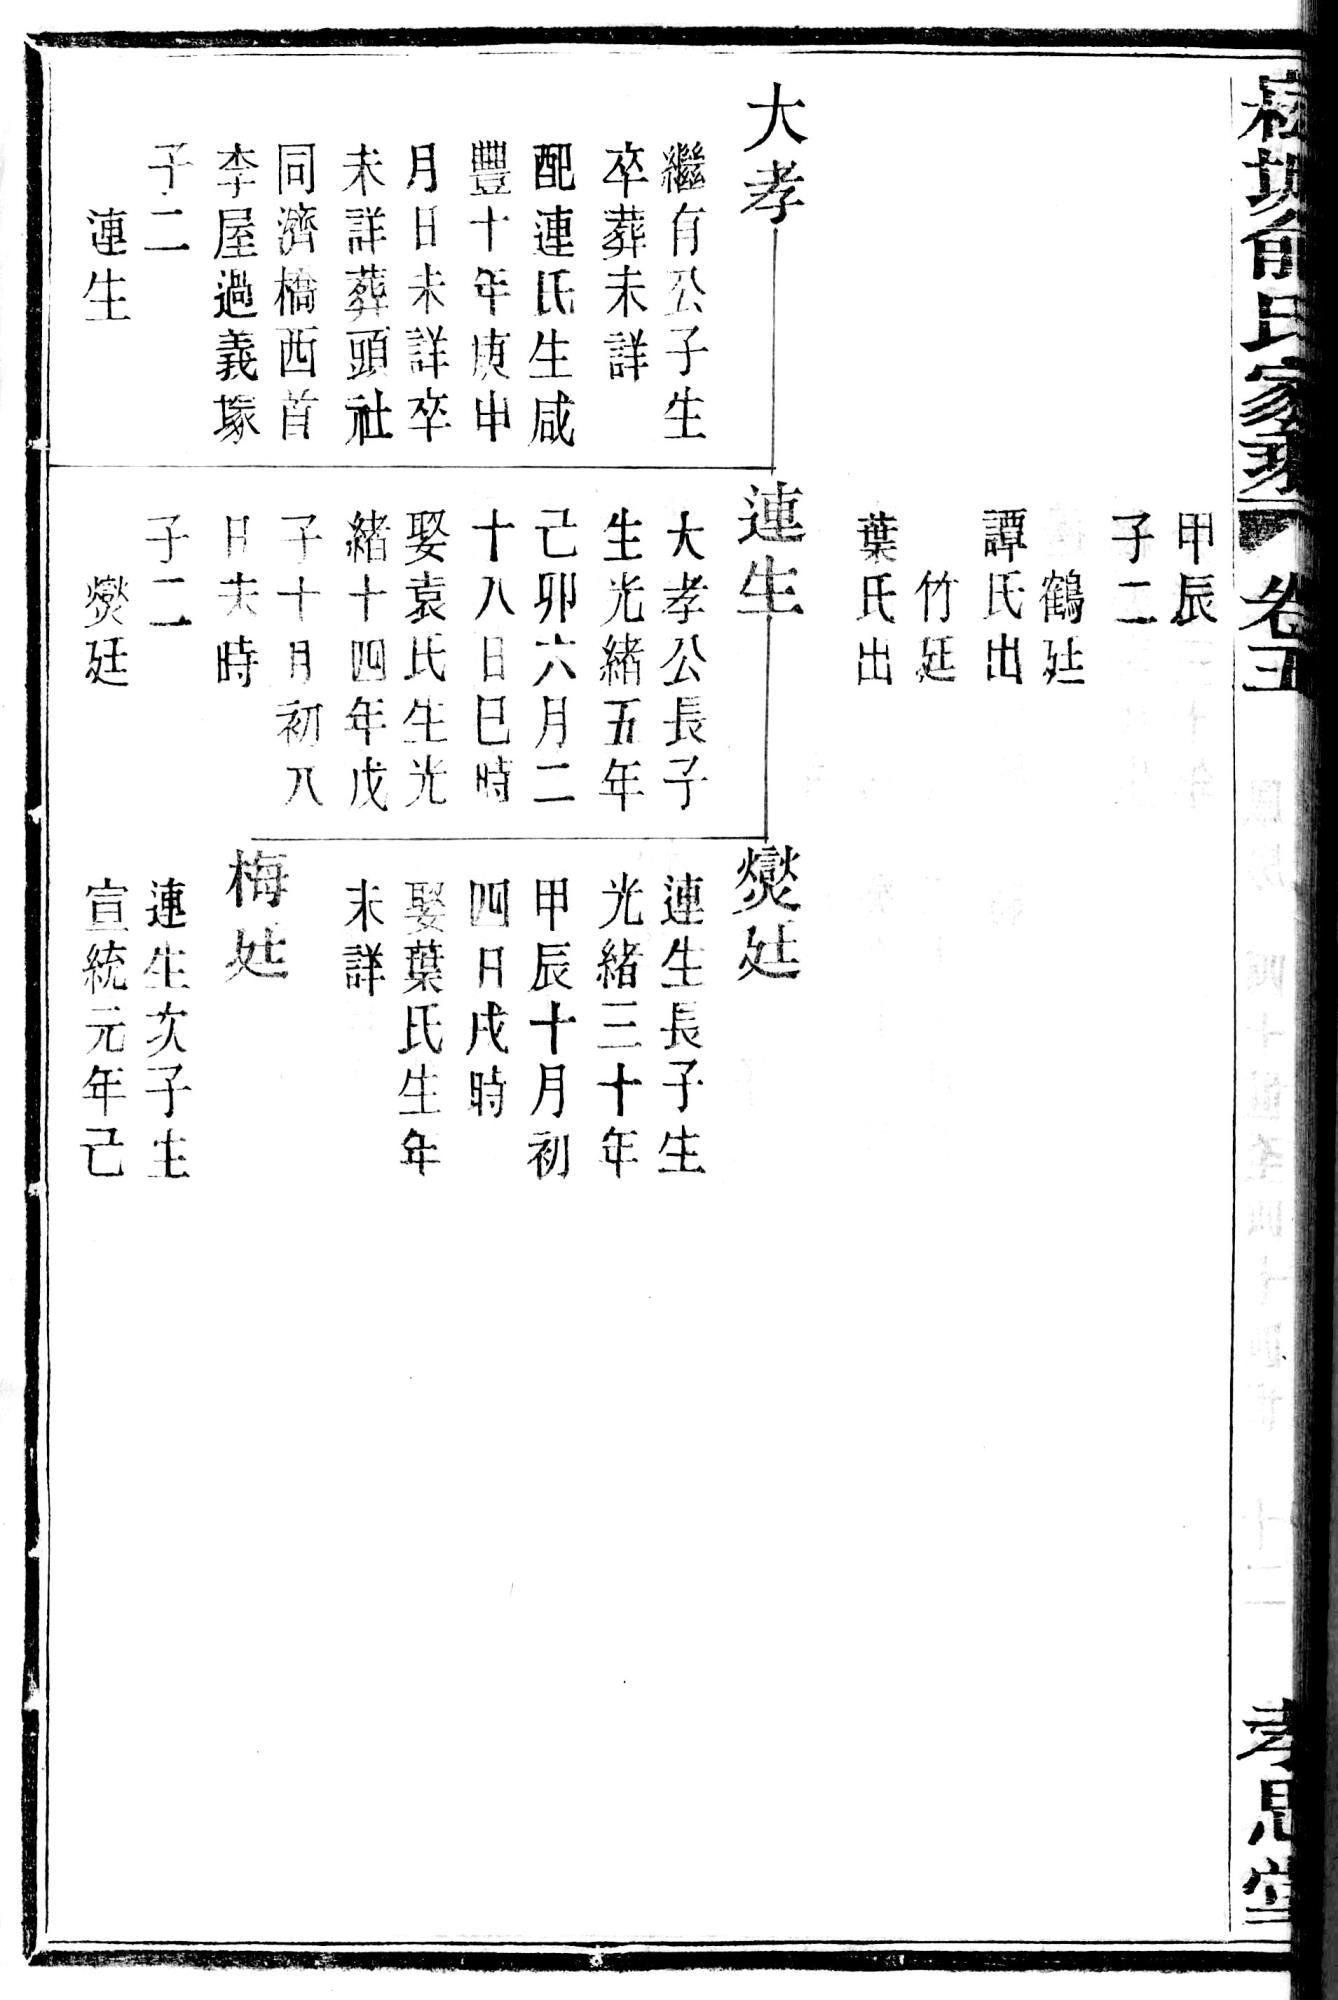 俞氏家乘
卷五
孝思堂
甲辰
子二
鶴廷
譚氏出
竹廷
葉氏出
大孝
繼有公子生
卒葬未詳
配連氏生咸
豐十年庚申
月日未詳卒
未詳葬頭社
同濟橋西首
李屋過義塚
子二
連生
連生
大孝公長子
生光緒五年
己卯六月二
十八日巳時
娶袁氏生光
緒十四年戊
子十月初八
日未時
子二
爕廷
爕廷
連生長子生
光緒三十年
甲辰十月初
四日戌時
娶葉氏生年
未詳
梅廷
連生次子生
宣統元年己